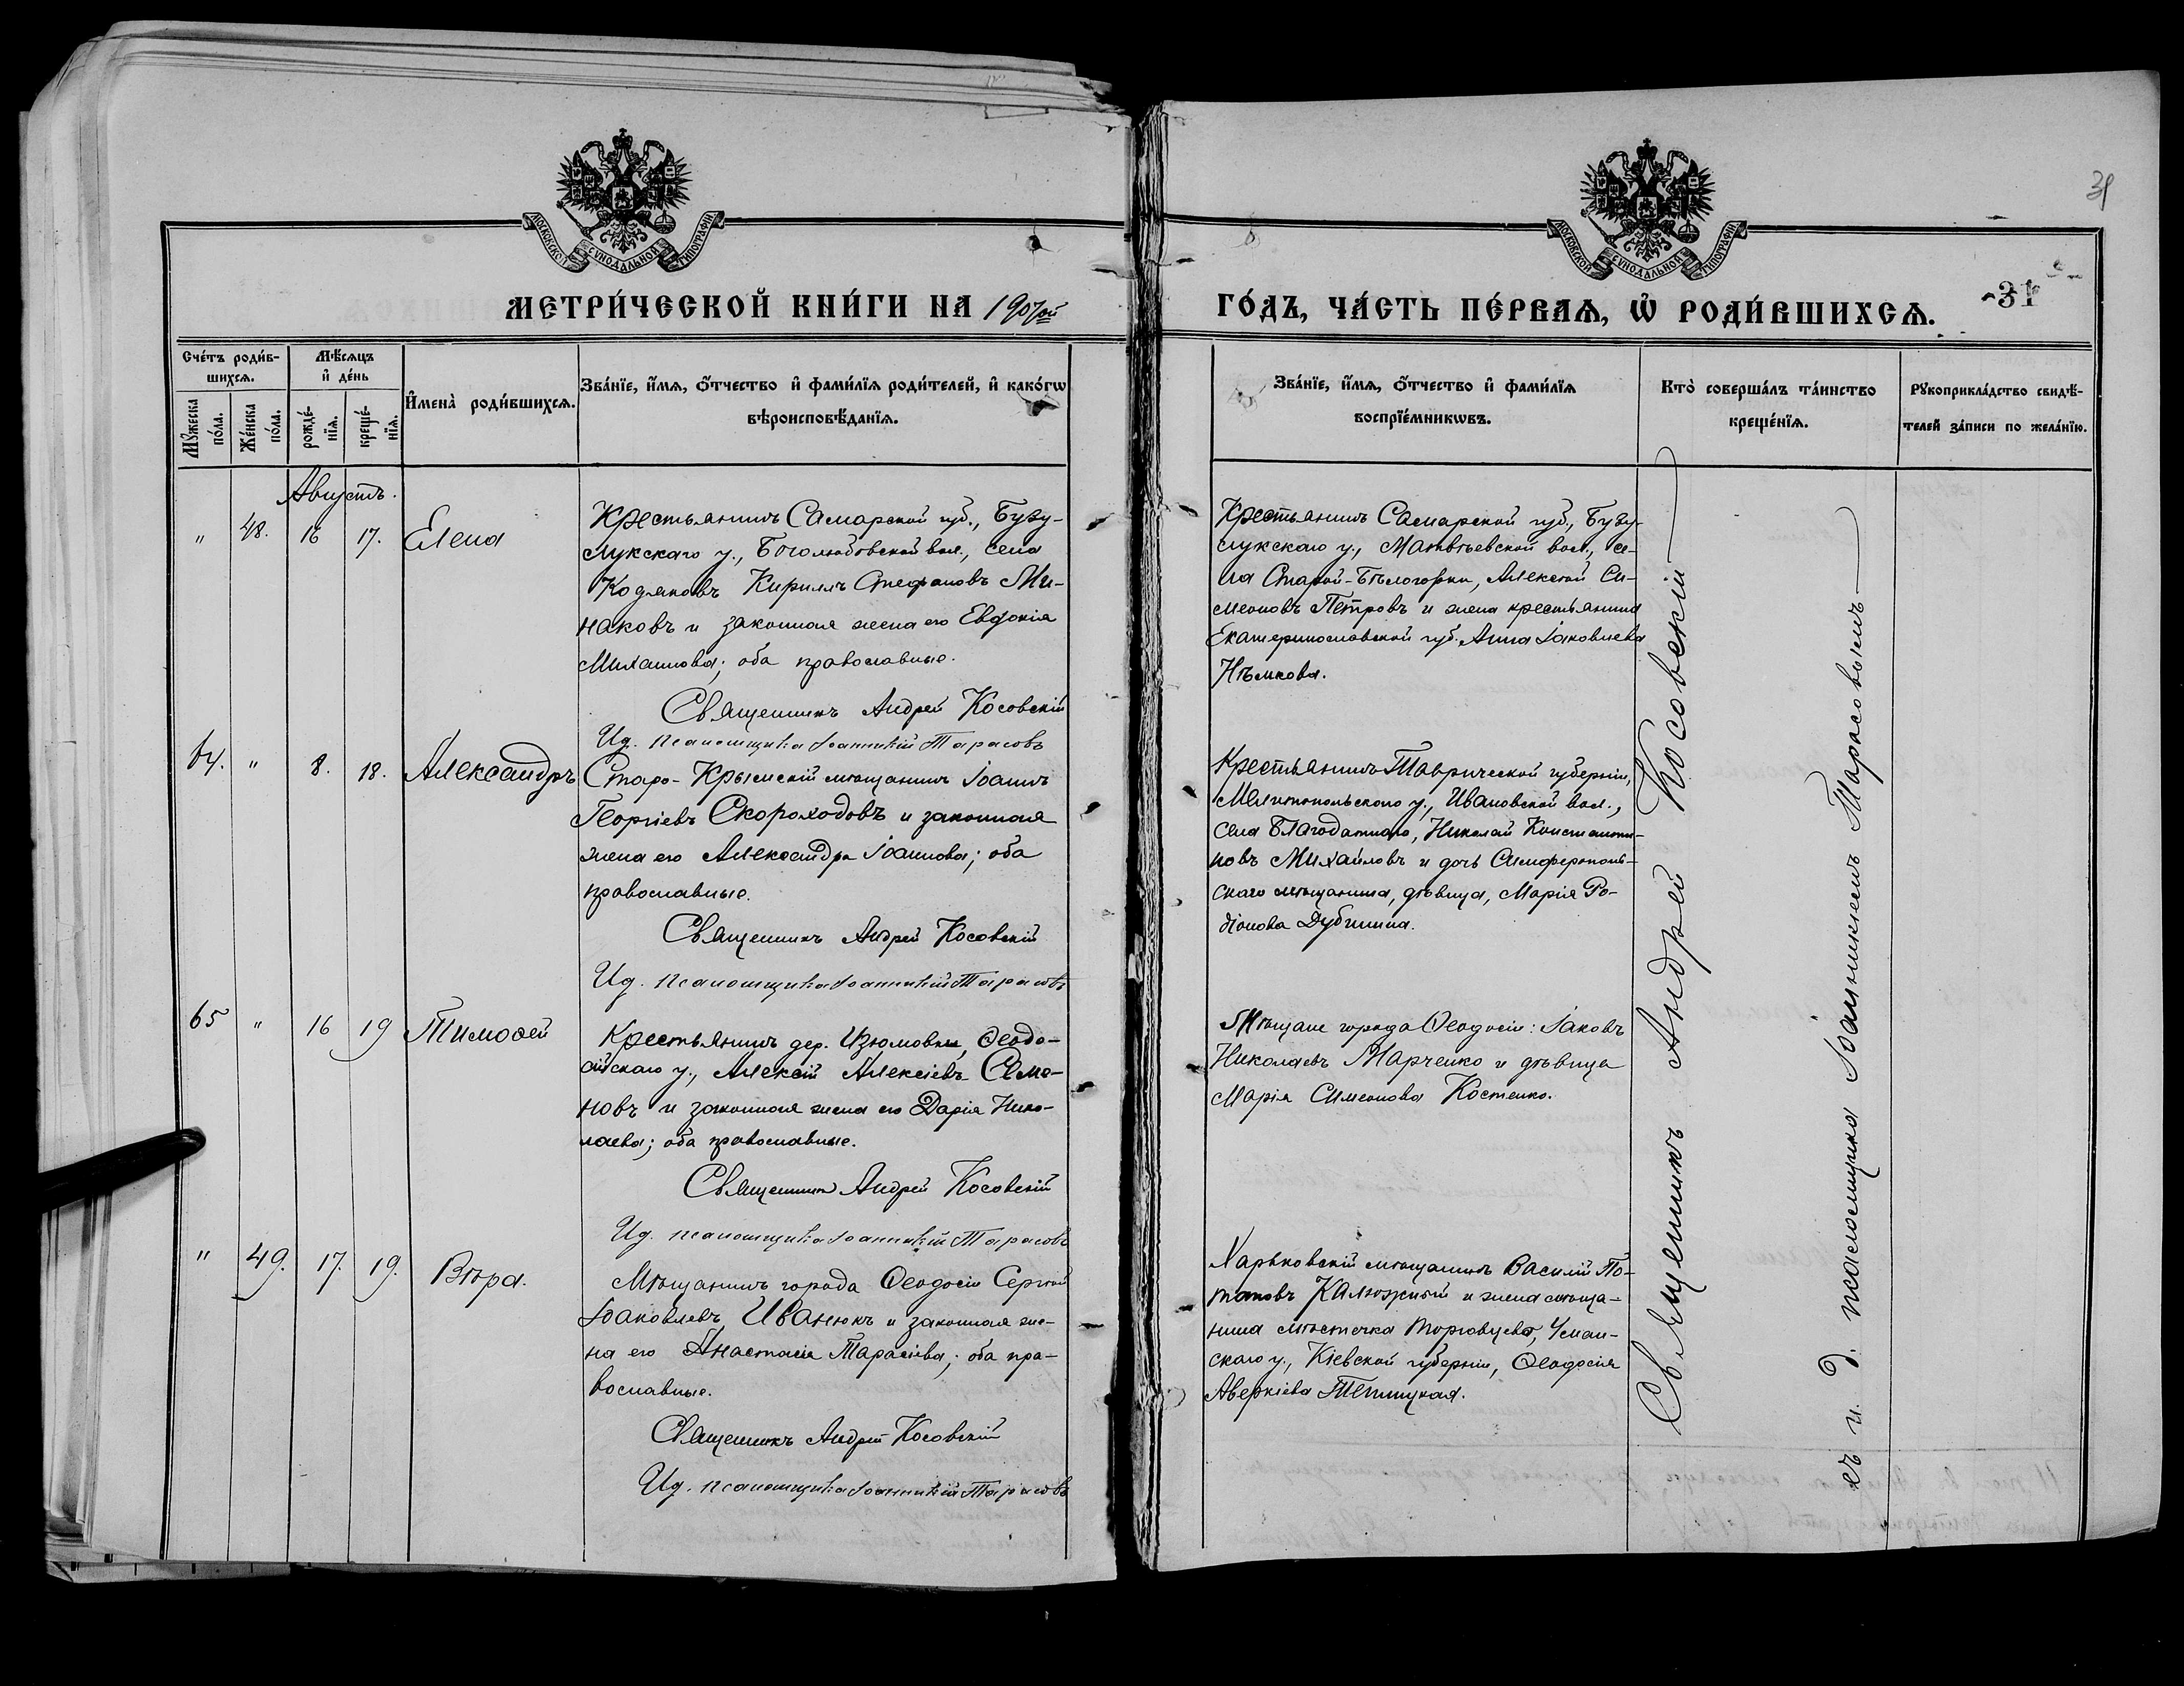 31
МОСКОВСКОЙ СѴНОДАЛЬНОЙ ТИПОГРАФІИ
МОСКОВСКОЙ СѴНОДАЛЬНОЙ ТИПОГРАФІИ
МЕТРИ́ЧЕСКОЙ КНИ́ГИ НА 1907ой
ГО́ДЪ, ЧА́СТЬ ПЕ́РВАѦ, Ѡ҆ РОДИ́ВШИХСѦ.
31
Сче́тъ роди́в-
шихсѧ.
Мꙋ́жеска по́ла.
Же́нска по́ла.
Мѣ́сѧцъ
и҆ де́нь
рожде́-
нїѧ.
креще́-
нїѧ.
И҆мена̀ роди́вшихсѧ.
Зва́нїе, и҆́мѧ, ѻ҆́тчество и҆ фами́лїѧ роди́телей, и҆ како́гѡ
вѣроисповѣ́данїѧ.
Зва́нїе, и҆́мѧ, ѻ҆́тчество и҆ фами́лїѧ
воспрїе́мникѡвъ.
Кто̀ соверша́лъ та́инство
креще́нїѧ.
Рꙋкоприкла́дство свидѣ́-
телей за́писи по жела́нїю.
Августъ.
" 48. 16 17. Елена
Крестьянинъ Самарской губ., Бузу-
лукскаго у., Боголюбовской вол., села
Кодяковъ Кириллъ Стефановъ Ми-
наковъ и законная жена его Евдокія
Михаилова; оба православные.
Священникъ Андрей Косовскій
Ид. псаломщика Іоанникій Тарасовъ
Крестьянинъ Самарской губ., Бузу-
лукскаго у., Матвѣевской вол., се-
ла Старой-Бѣлогорки, Алексѣй Си-
меоновъ Петровъ и жена крестьянина
Екатеринославской губ. Анна Іаковлева
Нѣмкова.
64. " 8. 18. Александръ
Старо-Крымскій мѣщанинъ Іоаннъ
Георгіевъ Скороходовъ и законная
жена его Александра Іоаннова; оба
православные.
Священникъ Андрей Косовскій
Ид. псаломщика Іоанникій Тарасовъ
Крестьянинъ Таврической губерніи,
Мелитопольскаго у., Ивановской вол.,
села Благодатнаго, Николай Константи-
новъ Михайловъ и дочь Симферополь-
скаго мѣщанина, дѣвица, Марія Ро-
діонова Дубинина.
65 " 16 19 Тимоѳей
Крестьянинъ дер. Изюмовки, Ѳеодо-
сійскаго у., Алексій Алексіевъ Семе-
новъ и законная жена его Дарія Нико-
лаева; оба православные.
Священникъ Андрей Косовскій
Ид. псаломщика Іоанникій Тарасовъ
Мѣщане города Ѳеодосіи: Іаковъ
Николаевъ Марченко и дѣвица
Марія Симеонова Костенко.
" 49. 17. 19. Вѣра.
Мѣщанинъ города Ѳеодосіи Сергѣй
Іоаковлевъ Иванюкъ и законная же-
на его Анастасія Тарасіева; оба пра-
вославные.
Священникъ Андрей Косовскій
Ид. псаломщика Іоанникій Тарасовъ
Харьковскій мѣщанинъ Василій По-
таповъ Калюжный и жена мѣща-
нина мѣстечка Торговцева, Уман-
скаго у., Кіевской губерніи, Ѳеодосія
Аверкіева Теплицкая.
Священникъ Андрей Косовскій
съ и. д. псаломщика Іоанникіемъ Тарасовымъ